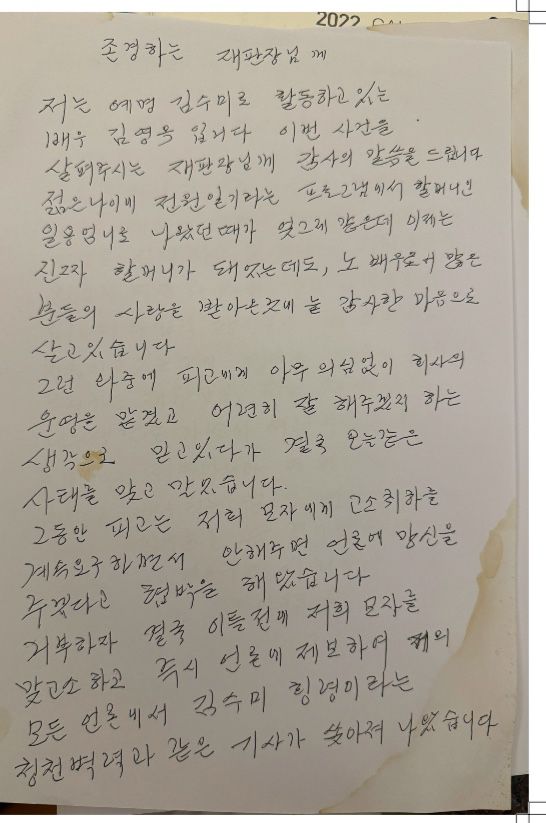 2022
존경하는 재판장님께
저는 예명 김수미로 활동하고 있는
배우 김영옥 입니다 이번 사건을
살펴주시는 재판장님께 감사의 말씀을 드립니다
젊은나이에 전원일기라는 프로그램에서 할머니인
일용엄니로 나왔던때가 엊그제 같은데 이제는
진짜 할머니가 돼었는데도, 노 배우로서 많은
분들의 사랑을 받아온것에 늘 감사한 마음으로
살고있습니다
그런 와중에 피고에게 아무 의심없이 회사의
운영을 맡겼고 어련히 잘 해주겠지 하는
생각으로 믿고있다가 결국 오늘같은
사태를 맞고 말았습니다.
그동안 피고는 저희 모자에게 고소취하를
계속요구하면서 안해주면 언론에 망신을
주겠다고 협박을 해 왔습니다
거부하자 결국 이틀전에 저희 모자를
맞고소 하고 즉시 언론에 제보하여 거의
모든 언론에서 김수미 횡령이라는
청천벽력과 같은 기사가 쏟아져 나왔습니다